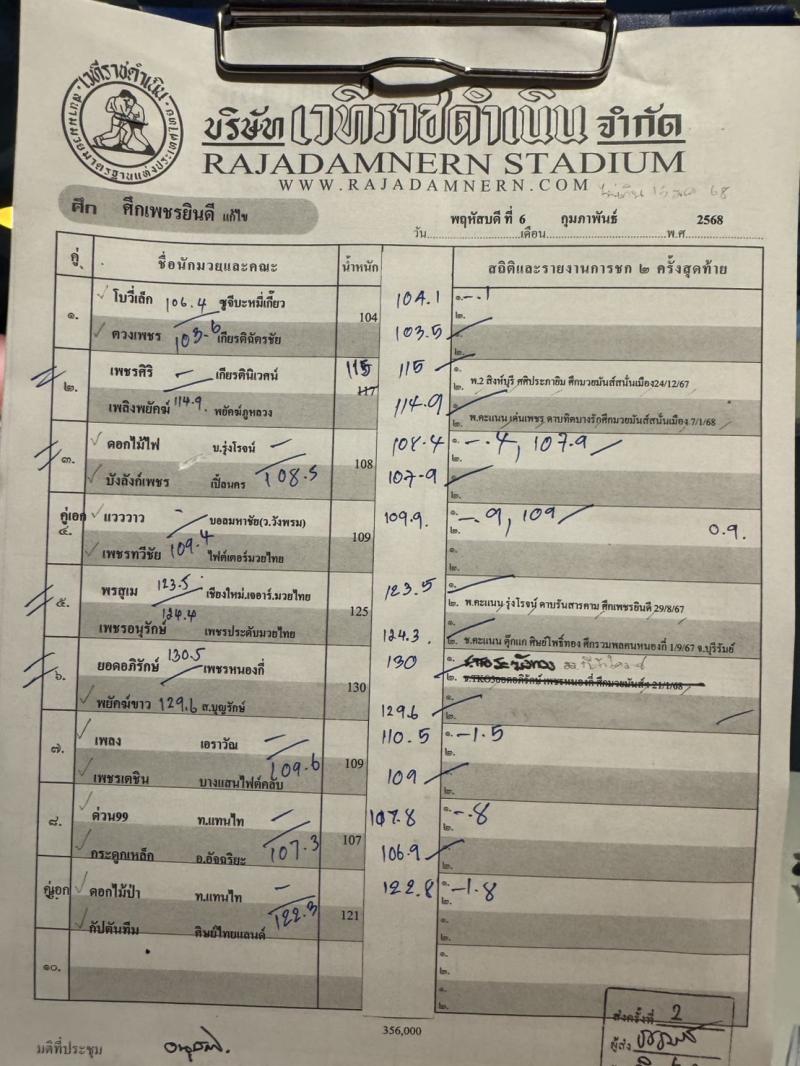 เวทีราชดำเนิน
สนามมวยมาตรฐานแห่งประเทศไทย
บริษัท เวทีราชดำเนิน จำกัด
RAJADAMNERN STADIUM
WWW.RAJADAMNERN.COM
ศึก ศึกเพชรยินดี แก้ไข
วัน พฤหัสบดี ที่ 6 เดือน กุมภาพันธ์ พ.ศ 2568
คู่ ชื่อนักมวยและคณะ น้ำหนัก สถิติและรายงานการชก ๒ ครั้งสุดท้าย
๑. โบวี่เล็ก 106.4 ซูจีบะหมี่เกี๊ยว 104 104.1 ๑. -.1
๒.
ดวงเพชร 103-6 เกียรติฉัตรชัย 103.5 ๑.
๒.
๒. เพชรศิริ - เกียรตินิเวศน์ 115 117 115 ๑.
๒. พ.2 สิงห์บุรี ศศิประภายิม ศึกมวยมันส์สนั่นเมือง24/12/67
เพลิงพยัคฆ์ 114.9. พยัคฆ์ภูหลวง 114.9 ๑.
๒. พ.คะแนน เด่นเพชร ดาบทิตบางรัก ศึกมวยมันส์สนั่นเมือง 7/1/68
๓. ดอกไม้ไฟ บ.รุ่งโรจน์ - 108 108.4 ๑. -.4, 107.9
๒.
บังลังก์เพชร เปิ้ลนคร 108.5 107-9 ๑.
๒.
คู่เอก ๔. แวววาว - บอลมหาชัย(ว.วังพรม) 109 109.9. ๑. -.9, 109
๒. 0.9.
เพชรทวีชัย 109.4 ไฟต์เตอร์มวยไทย ๑.
๒.
๕. พรสุเม 123.5 เชียงใหม่.เจอาร์.มวยไทย 125 123.5 ๑.
๒. พ.คะแนน รุ่งโรจน์ ดาบรันสารคาม ศึกเพชรยินดี 29/8/67
เพชรอนุรักษ์ 124.4 เพชรประดับมวยไทย 124.3 ๑.
๒. ช.คะแนน ตุ๊กแก ศิษย์โพธิ์ทอง ศึกรวมพลคนหนองกี่ 1/9/67 จ.บุรีรัมย์
๖. ยอดอภิรักษ์ 130.5 เพชรหนองกี่ 130 130 ๑.
๒. ช.TKO3ยอดอภิรักษ์ เพชรหนองกี่ ศึกมวยมันส์ฯ 21/1/68
พยัคฆ์ขาว 129.6 ส.บุญรักษ์ 129.6 ๑.
๒.
๗. เพลง เอราวัณ - 109 110.5 ๑. -1.5
๒.
เพชรเตชิน บางแสนไฟต์คลับ 109.6 109 ๑.
๒.
๘. ด่วน99 ท.แทนไท - 107 107.8 ๑. -.8
๒.
กระดูกเหล็ก อ.อัจฉริยะ 107.3 106.9 ๑.
๒.
คู่เอก ดอกไม้ป่า ท.แทนไท - 121 122.8 ๑. -1.8
๒.
กัปตันทีม ศิษย์ไทยแลนด์ 122.3 ๑.
๒.
๑๐. ๑.
๒.
๑.
๒.
356,000
มติที่ประชุม
ส่งครั้งที่ 2
ผู้ส่ง